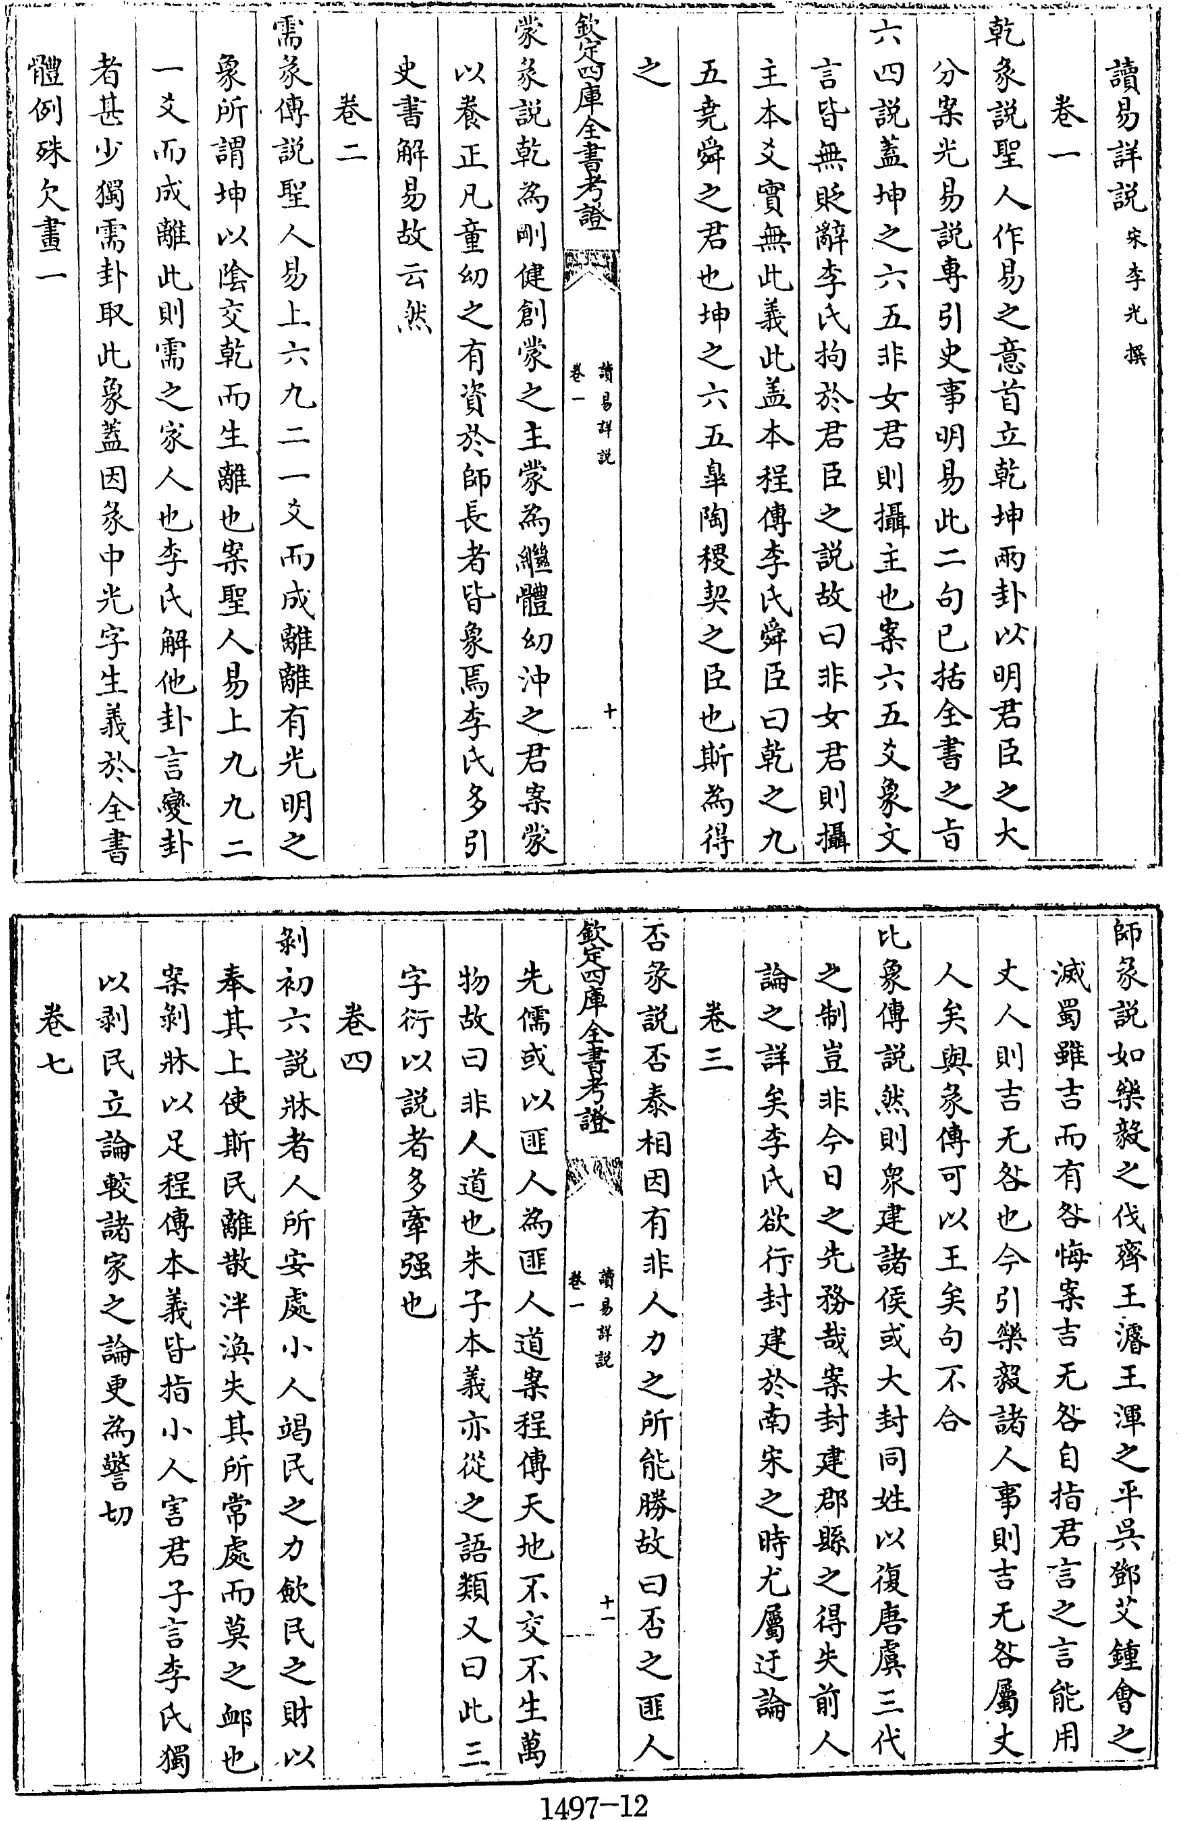 讀易詳説宋李光撰
卷一
乾彖説聖人作易之意首立乾坤兩卦以明君臣之大
分案光易説專引史事明易此二句已括全書之㫖
六四説葢坤之六五非女君則攝主也案六五爻象文
言皆無貶辭李氏拘於君臣之説故曰非女君則攝
主本爻實無此義此盖本程傳李氏舜臣曰乾之九
五堯舜之君也坤之六五臯陶稷契之臣也斯為得
之
欽定四庫全書考證
讀易詳説
卷一
十
蒙彖説乾為剛健創蒙之主蒙為繼體幼沖之君案蒙
以養正凡童幼之有資於師長者皆象焉李氏多引
史書解易故云然
卷二
需彖傳説聖人易上六九二一爻而成離離有光明之
象所謂坤以陰交乾而生離也案聖人易上九九二
一爻而成離此則需之家人也李氏解他卦言變卦
者甚少獨需卦取此象蓋因彖中光字生義於全書
體例殊欠畫一
師彖説如樂毅之伐齊王濬王渾之平吳鄧艾鍾會之
滅蜀雖吉而有咎悔案吉无咎自指君言之言能用
丈人則吉无咎也今引樂毅諸人事則吉无咎屬丈
人矣與彖傳可以王矣句不合
比象傳説然則衆建諸侯或大封同姓以復唐虞三代
之制豈非今日之先務哉案封建郡縣之得失前人
論之詳矣李氏欲行封建於南宋之時尤屬迂論
卷三
否彖説否泰相因有非人力之所能勝故曰否之匪人
欽定四庫全書考證
讀易詳説
卷一
十一
先儒或以匪人為匪人道案程傳天地不交不生萬
物故曰非人道也朱子本義亦從之語類又曰此三
字衍以説者多牽强也
卷四
剝初六説牀者人所安處小人竭民之力歛民之財以
奉其上使斯民離散泮渙失其所常處而莫之䘏也
案剝牀以足程傳本義皆指小人害君子言李氏獨
以剥民立論較諸家之論更為警切
卷七
1497-12